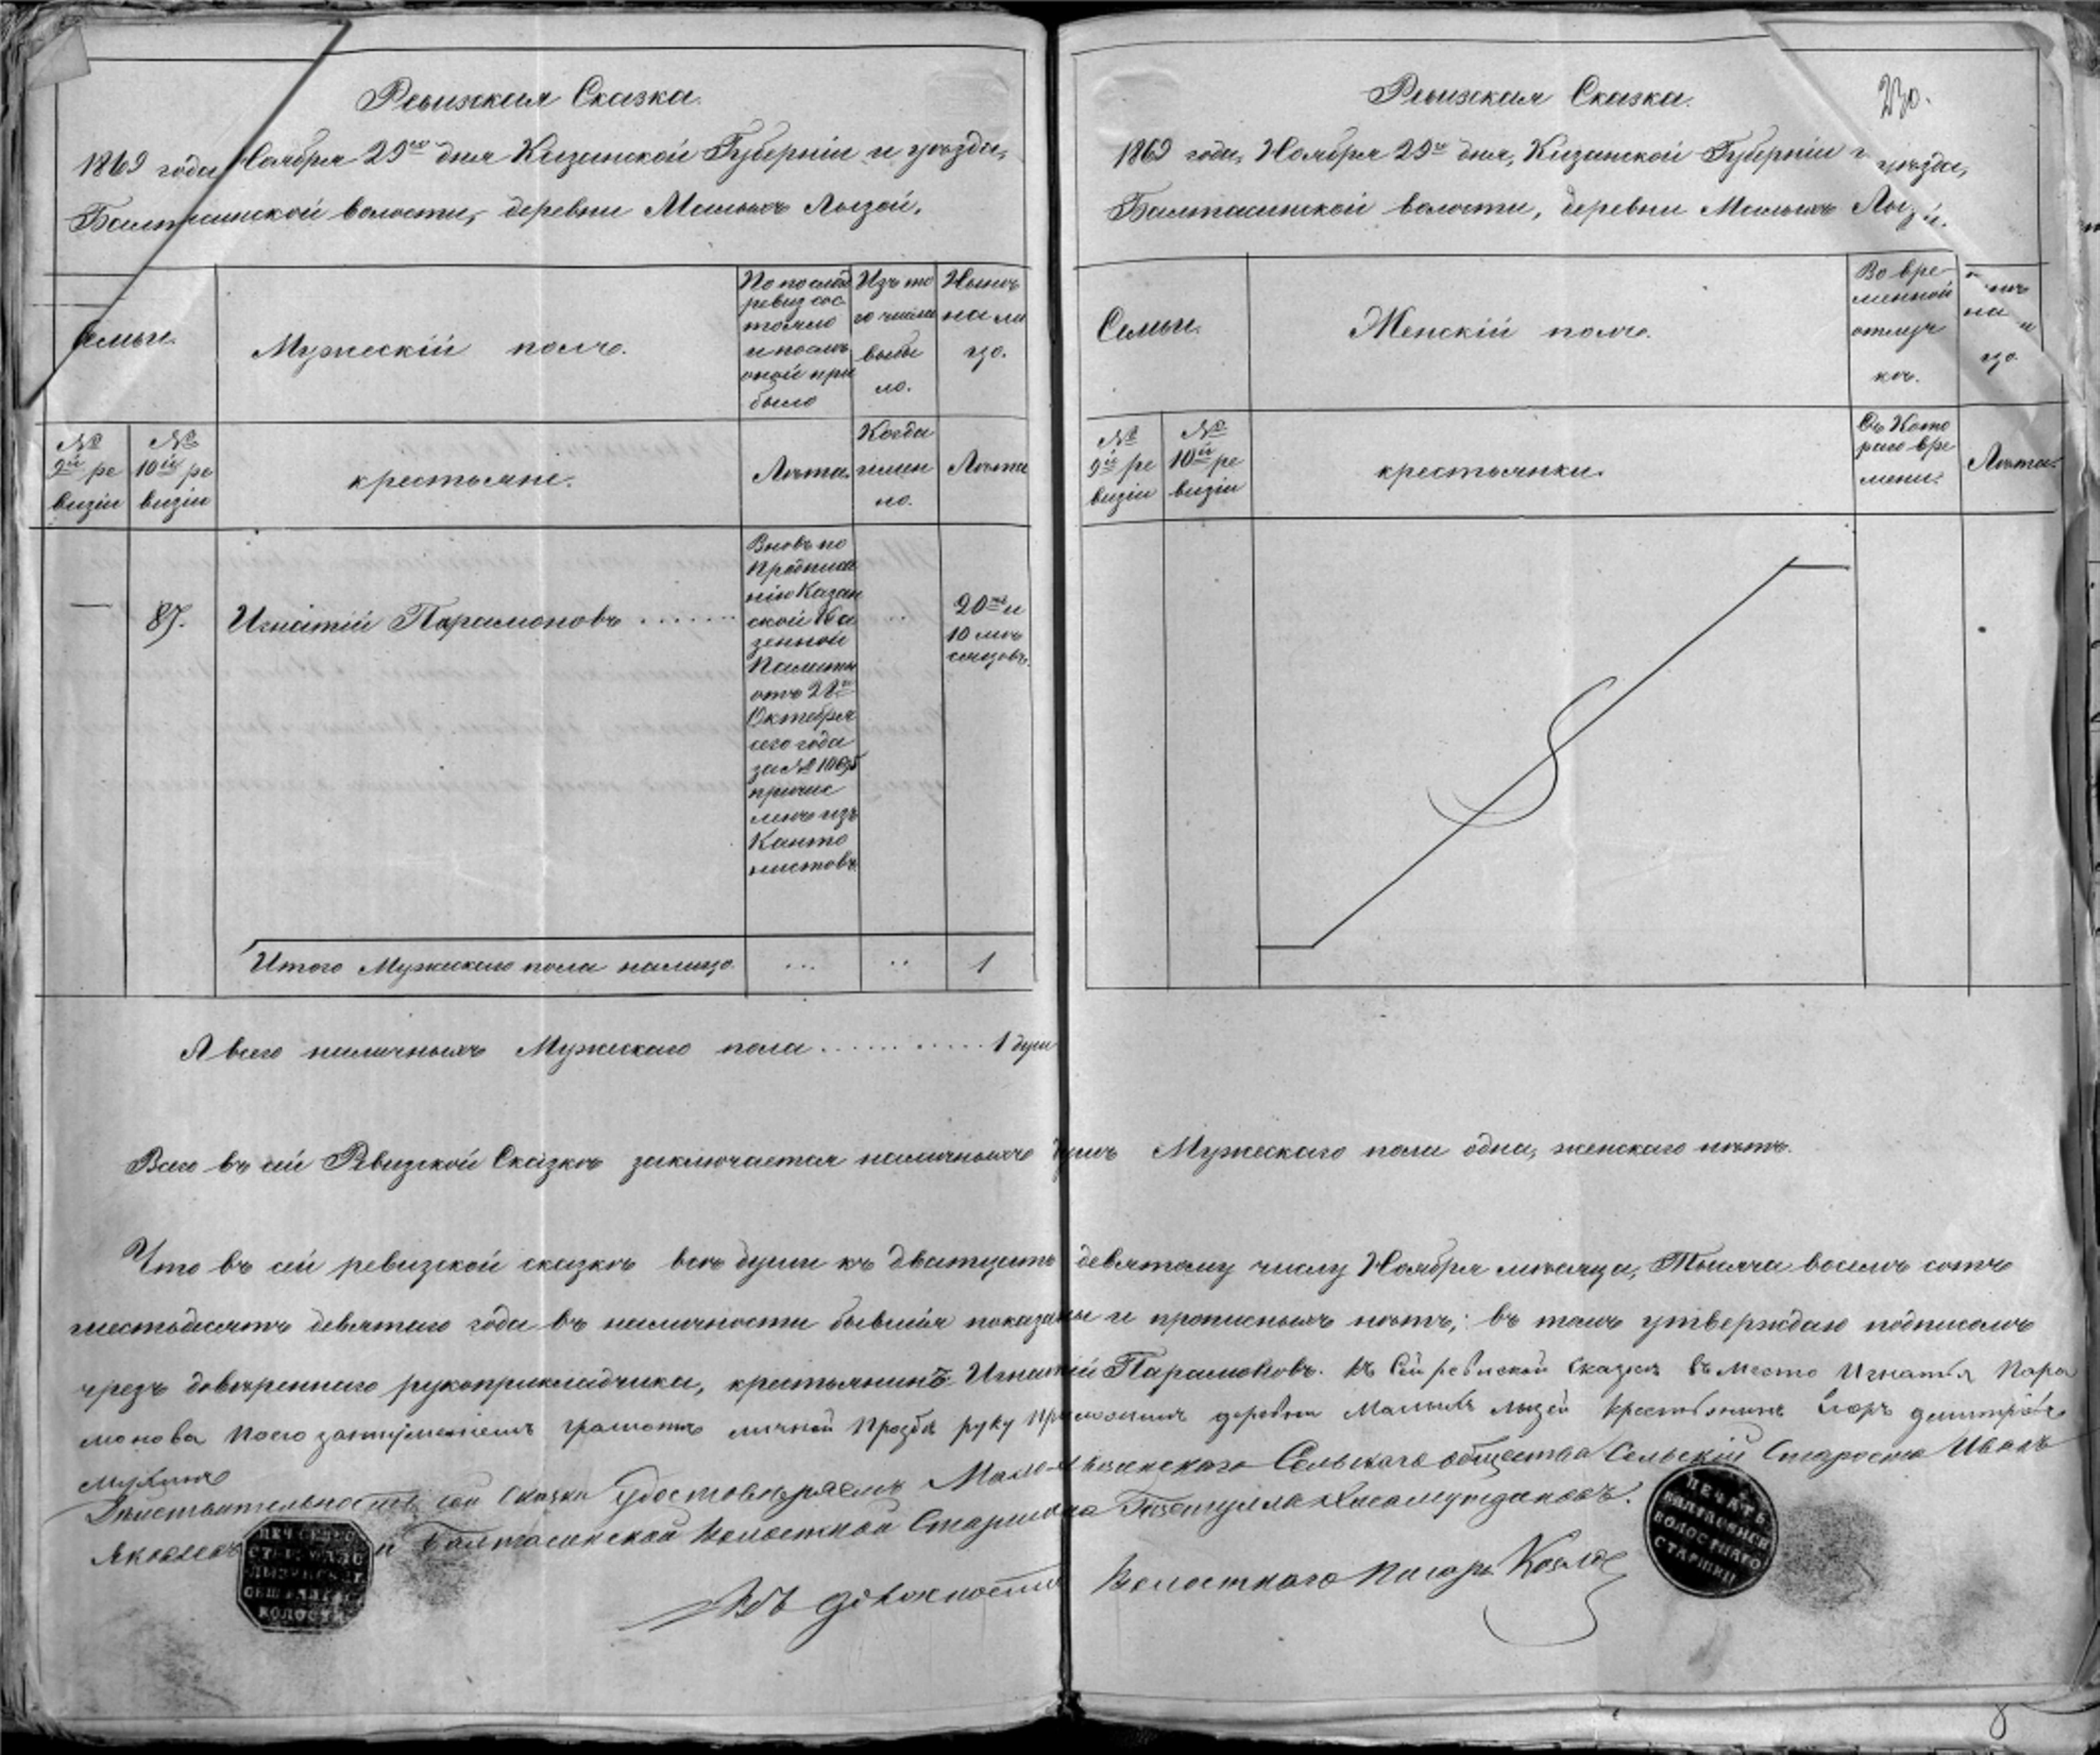 Ревизская Сказка.
1869 года Ноября 29го дня Казанской Губерніи и уѣзда,
Балтасинской волости, деревни Малыхъ Лызей.
Семьи.
Мужескій полъ.
По послѣд
ревиз сос
тояло
и послѣ
оной при
было
Изъ то
го числа
выбы
ло.
Нынѣ
на ли
цо.
№
9й ре
визіи
№
10й ре
визіи
крестьяне.
Лѣта.
Когда
имен
но.
Лѣта
—
87.
Игнатій Парамоновъ . . . . . .
Вновь по
Предписа
нію Казан
ской Ка
зенной
Палаты
отъ 28го
Октября
сего года
за №
причис
ленъ изъ
Канто
нистовъ.
20ть и
10 мѣ
сяцовъ.
Итого Мужескаго пола налицо.
...
..
1
А всего наличныхъ Мужескаго пола . . . . . . . . . . . 1 душа
230.
Ревизская Сказка.
1869 года, Ноября 29го дня, Казанской Губерніи и уѣзда,
Балтасинской волости, деревни Малыхъ Лызей.
Семьи.
Женскій полъ.
Во вре-
менной
отлуч
кѣ.
на
цо.
№
9й ре
визіи
№
10й ре
визіи
крестьянки.
Съ Кото
раго вре
мени.
Лѣта.
Всего въ сей Ревизской Сказкѣ заключается наличныхъ душъ Мужескаго пола одна, женскаго нѣтъ.
Что въ сей ревизской сказкѣ всѣ души къ двадцать девятому числу Ноября мѣсяца, Тысяча восемь сотъ
шестьдесятъ девятаго года въ наличности бывшія показаны и прописныхъ нѣтъ; въ томъ утверждаю подписомъ
чрезъ довѣреннаго рукоприкладчика, крестьянинъ Игнатій Парамоновъ. Къ Сей ревиской Сказкѣ въ место Игнатья Пара
монова по его грамотѣ личной прозбѣ руку приложилъ деровни Малыхъ лызей крестьянинъ Егоръ
Дѣйствительность сей Сказки удостовѣряемъ Мало-Лызинского Сельского общества Сельскій Староста Иванъ
Яковлевъ и Балтасинской Волостной Старшина
Въ должности Волостного Писаря Козлов
ПЕЧАТЬ
ВОЛОСТНАГО
СТАРШИНЫ